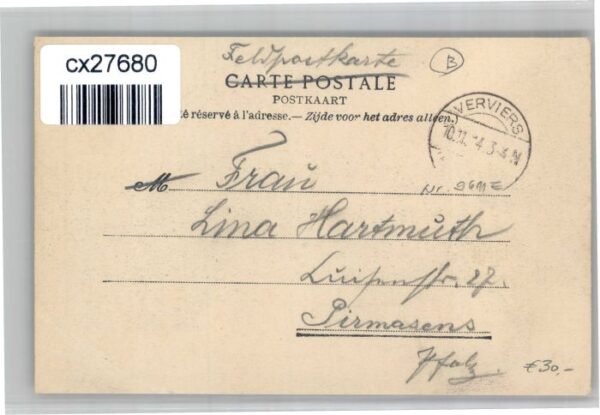 cx27680
Feldpostkarte
B
CARTE POSTALE
POSTKAART
té réservé à l'adresse.— Zijde voor het adres alleen.)
VERVIERS
10.11.14.3-4N
M Frau
Lina Hartmuth
Luisenstr. 27.
Pirmasens
Pfalz.
€30,-